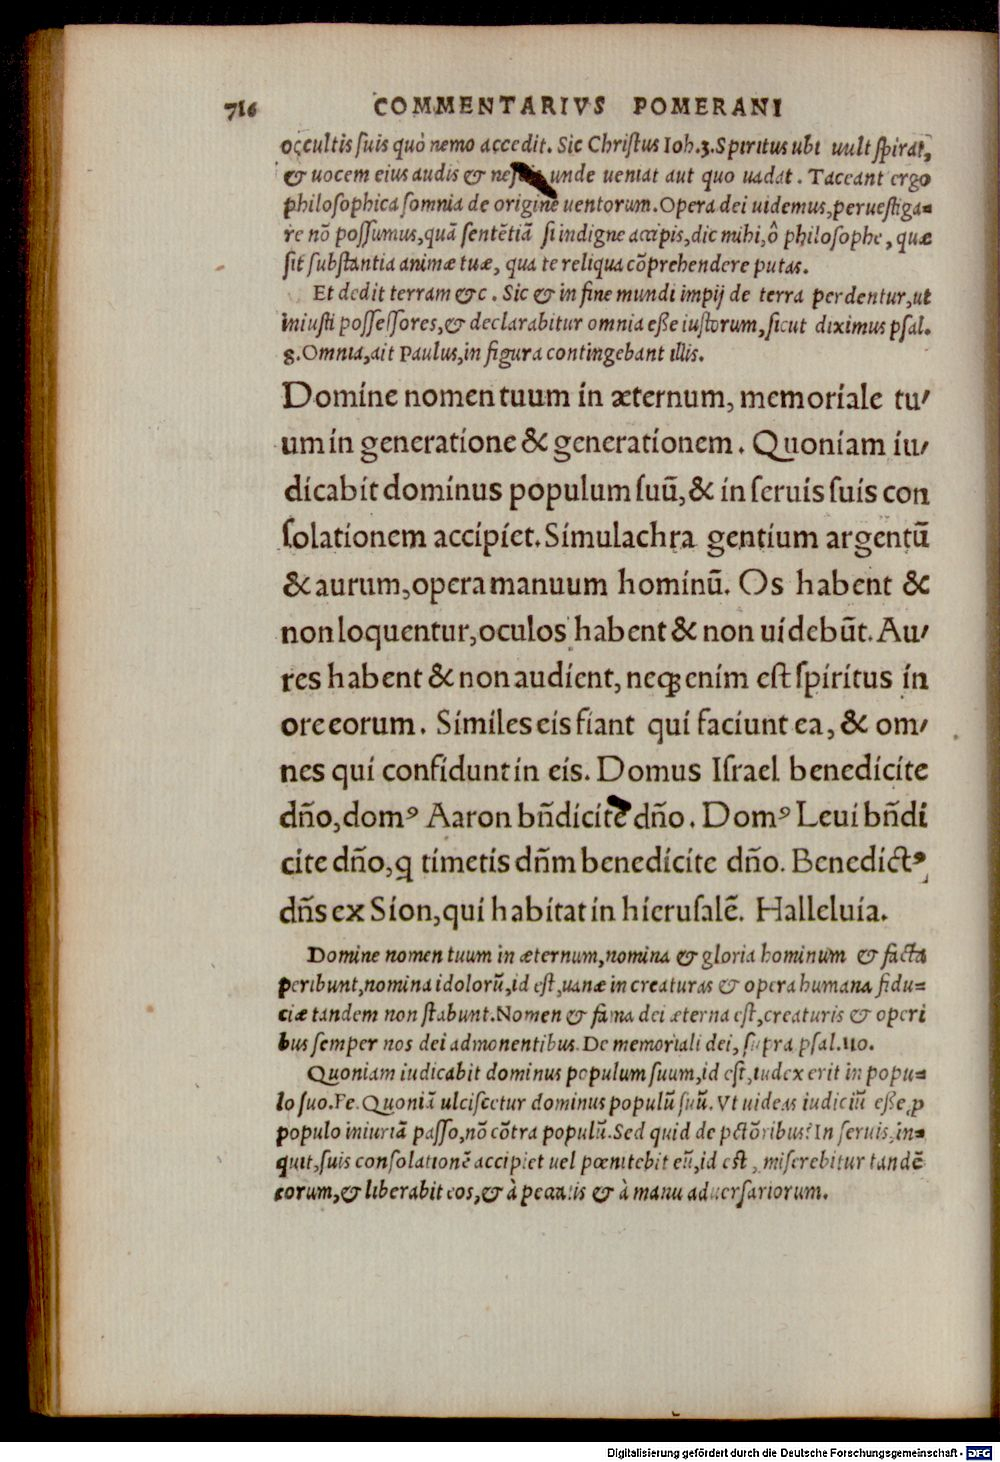 716 COMMENTARIVS POMERANI
occultis suis quò nemo accedit. Sic Christus Ioh.3. Spiritus ubi uult spirat,
& uocem eius audis & unde ueniat aut quo uadat. Taceant ergo
philosophica somnia de origine uentorum. Opera dei uidemus, peruestiga=
re nō possumus, quā sentētiā si indigne accipis, dic mihi, ô philosophe, quæ
sit substantia animæ tuæ, qua te reliqua cōprehendere putas.
Et dedit terram &c. Sic & in fine mundi impij de terra perdentur, ut
iniusti possessores, & declarabitur omnia esse iustorum, sicut diximus psal.
9. Omnia, ait Paulus, in figura contingebant illis.
Domine nomen tuum in æternum, memoriale tu/
um in generatione & generationem. Quoniam iu/
dicabit dominus populum suū, & in seruis suis con
solationem accipiet. Simulachra gentium argentū
& aurum, opera manuum hominū. Os habent &
non loquentur, oculos habent & non uidebūt. Au/
res habent & non audient, neqꝫ enim est spiritus in
ore eorum. Similes eis fiant qui faciunt ea, & om/
nes qui confidunt in eis. Domus Israel benedicite
dño, domꝰ Aaron bñdicite dño. Domꝰ Leui bñdi
cite dño, q timetis dñm benedicite dño. Benedictꝰ
dñs ex Sion, qui habitat in hierusalē. Halleluia.
Domine nomen tuum in æternum, nomina & gloria hominum & facta
peribunt, nomina idolorū, id est, uanæ in creaturas & opera humana fidu=
ciæ tandem non stabunt. Nomen & fama dei æterna est, creaturis & operi
bus semper nos dei admonentibus. De memoriali dei, supra psal. 110.
Quoniam iudicabit dominus populum suum, id est, iudex erit in popu=
lo suo. Fe. Quoniā ulciscetur dominus populū suū. Vt uideas iudiciū esse ꝓ
populo iniuriā passo, nō cōtra populū. Sed quid de pctōribus? In seruis, in=
quit, suis consolationē accipiet uel pœnitebit eū, id est, miserebitur tandē
eorum, & liberabit eos, & à peccatis & à manu aduersariorum.
Digitalisierung gefördert durch die Deutsche Forschungsgemeinschaft - DFG